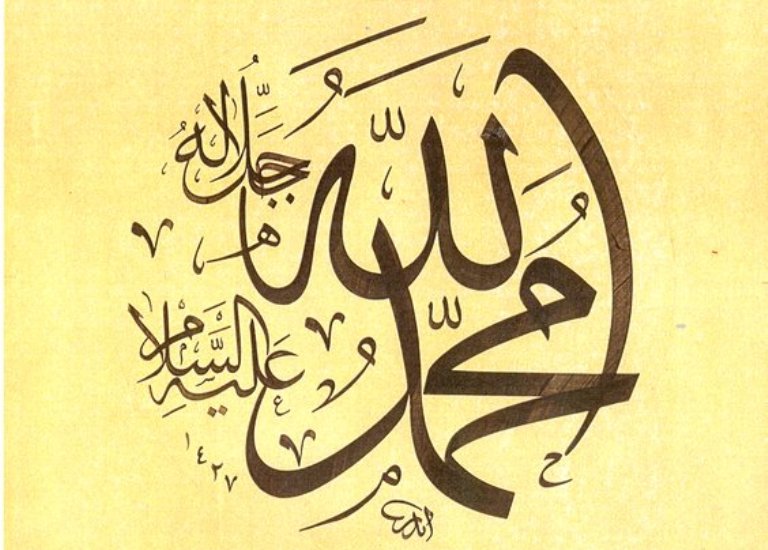 اللّٰهُ
جَلَّ جَلَالُهُ
مُحَمَّد
عَلَيْهِ السَّلَام
١٤٢٧